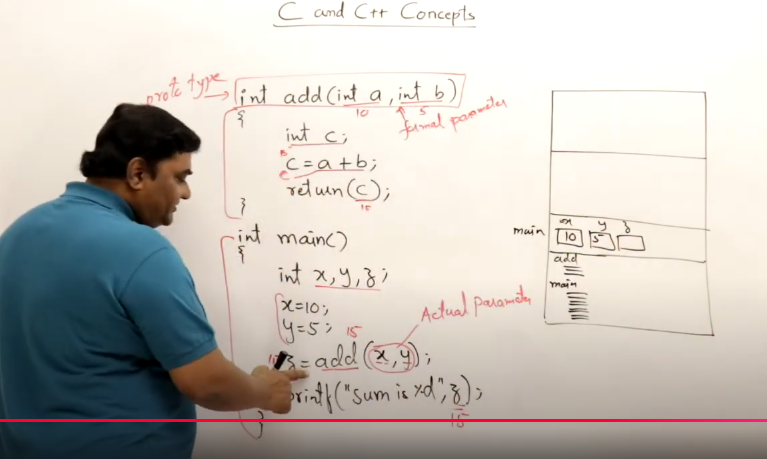 C and C++ Concepts
prototype
int add(int a, int b)
10 5
formal parameter
{
int c;
c=a+b;
return(c);
15
}
int main()
{
int x,y,z;
x=10;
y=5;
15
Actual parameter
z=add(x,y);
printf("sum is %d",z);
15
}
x y z
main 10 5
add
main